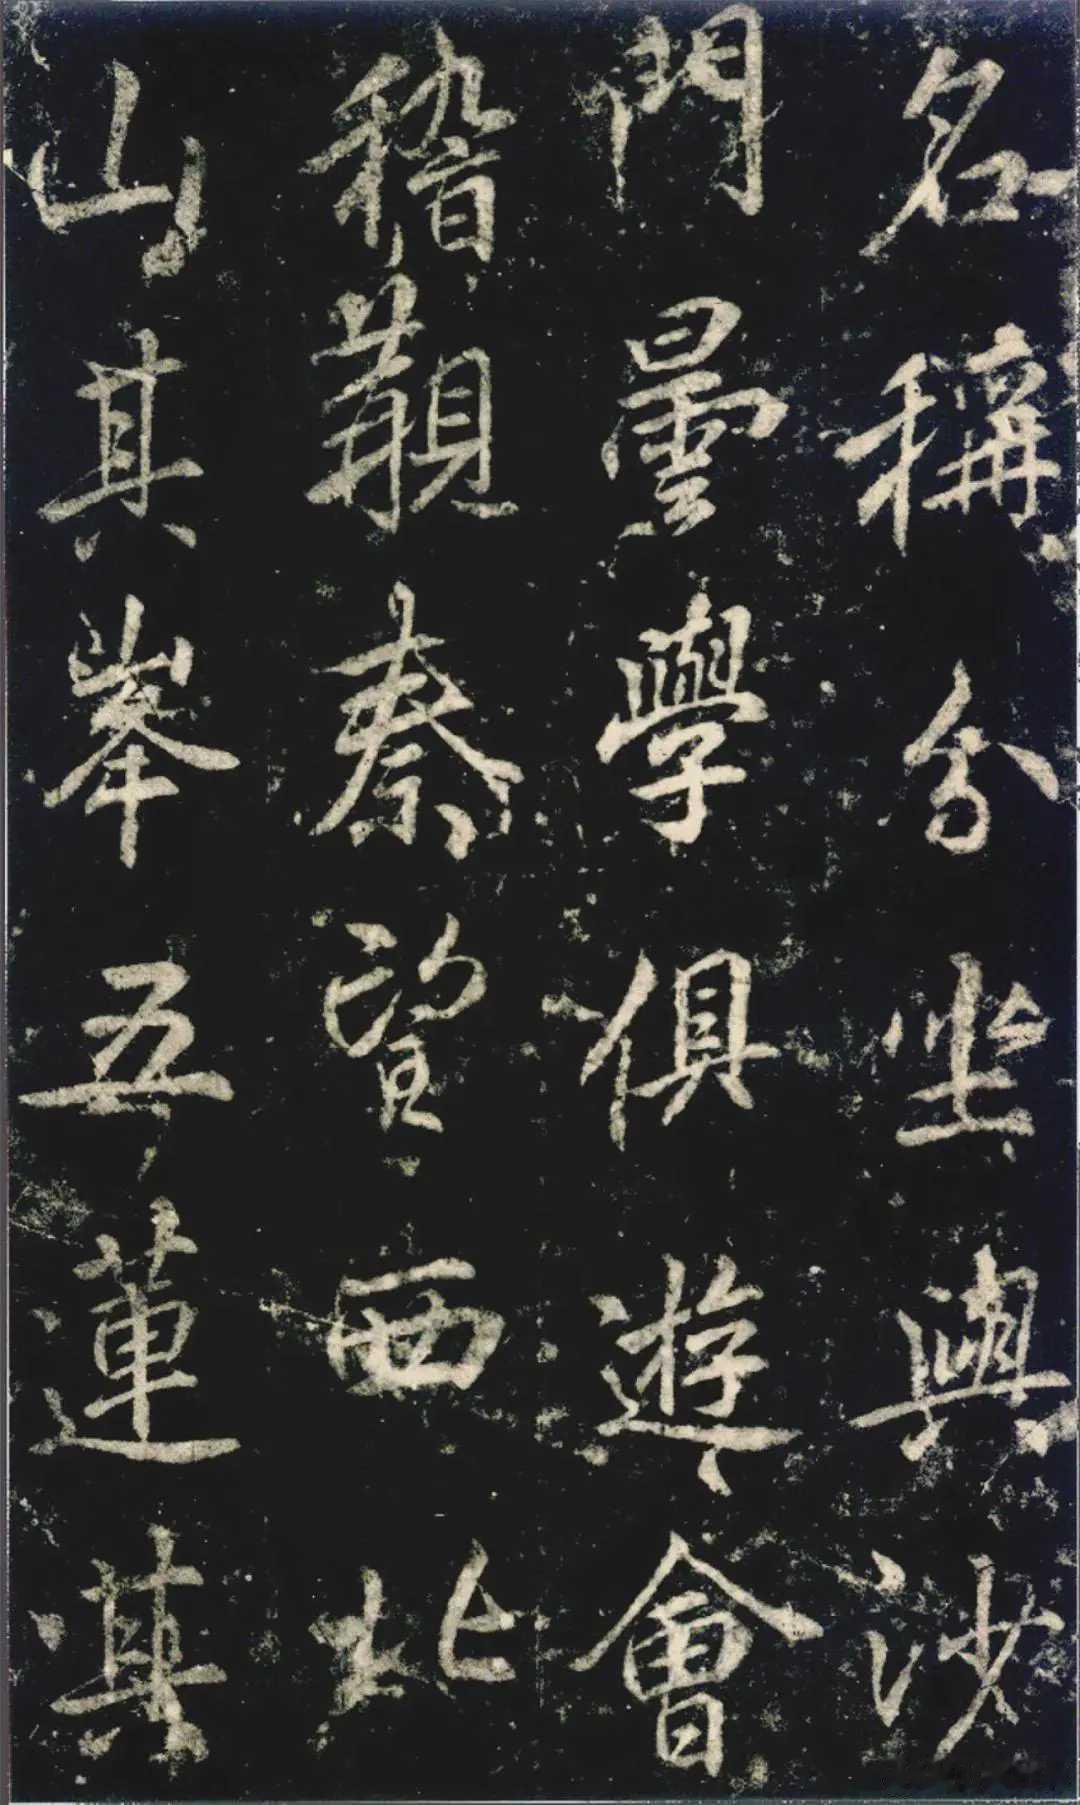 名稱分坐與沙
門曇學俱遊會
稽覩秦望西北
山其峯五蓮其